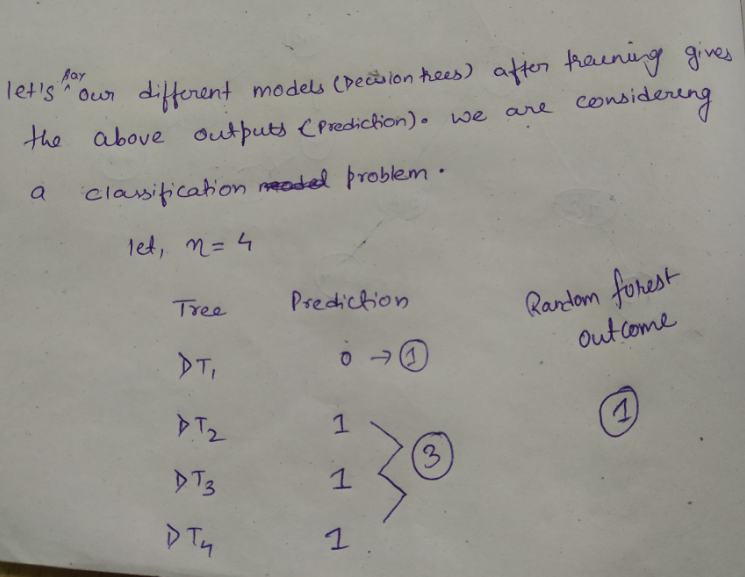 let's say our different models (Decision trees) after training gives
the above outputs (prediction). we are considering
a classification model problem.
let, n = 4
Tree Prediction Random forest outcome
DT1 0 → 1
DT2 1
DT3 1 3 1
DT4 1